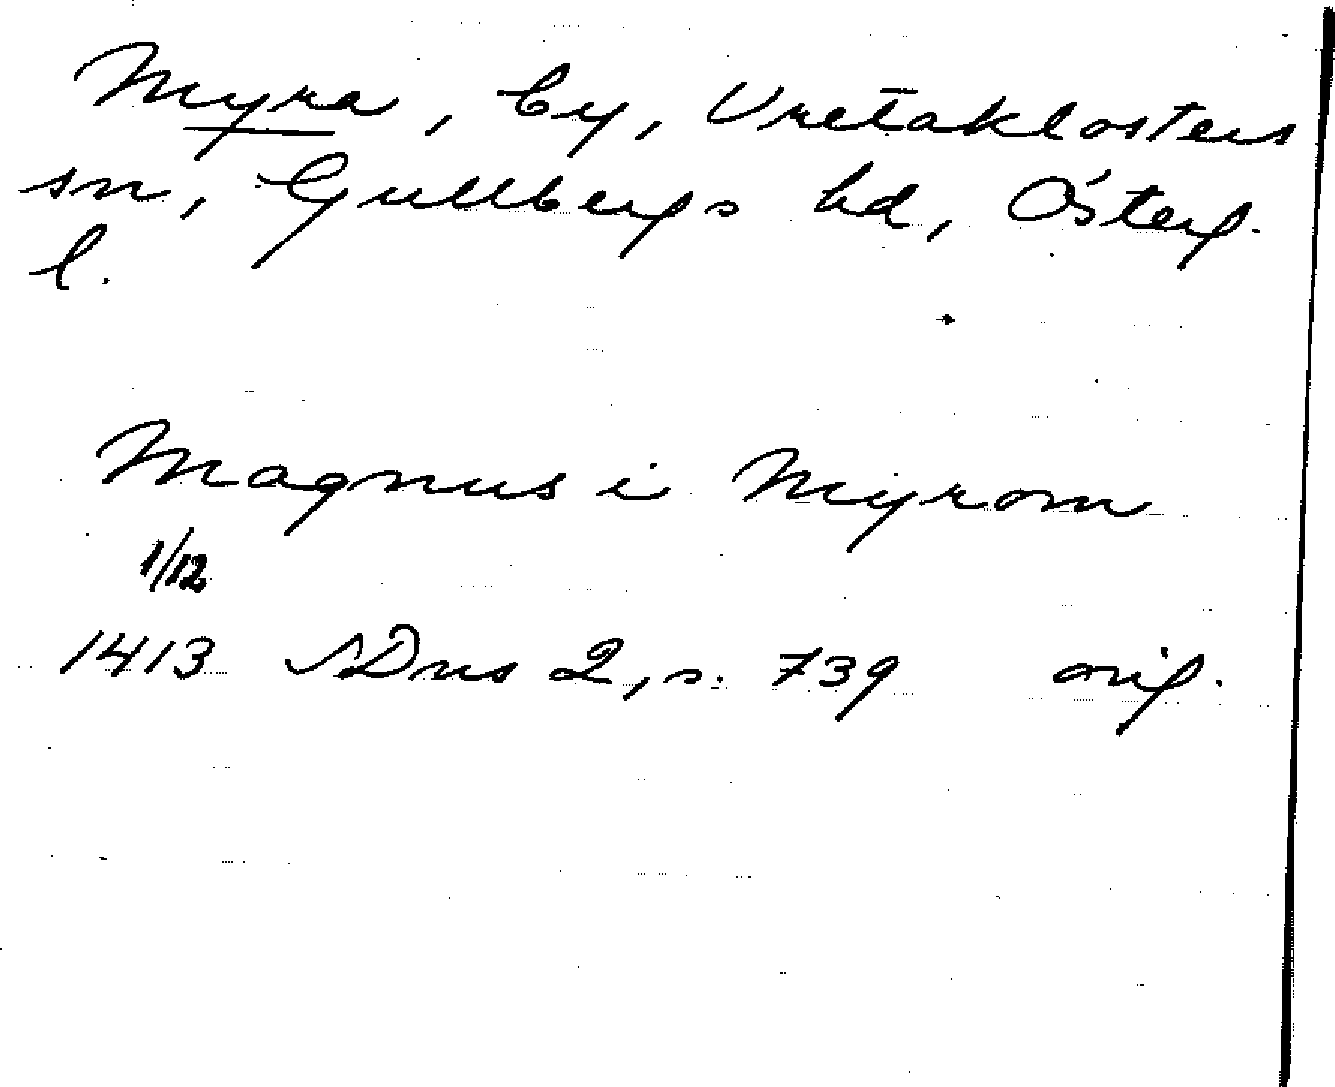 Myra, by, Vretaklosters
sn, Gullbergs hd, Österg.
l.
Magnus i Myrom
1/12
1413 SDns 2, s. 739 orig.